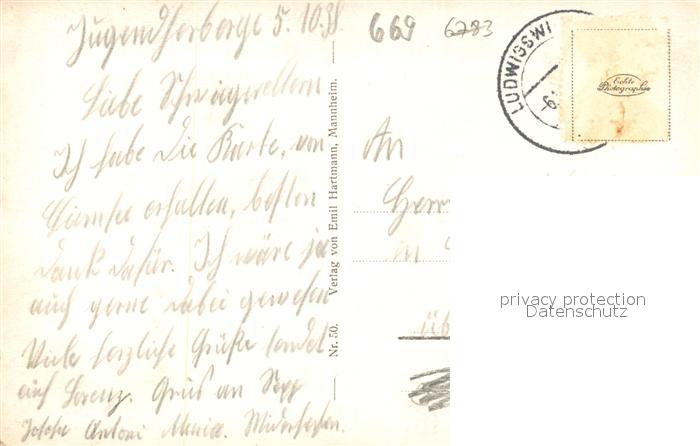 Jugendherberge 5. 10. 38
669 6783
LUDWIGSWI
Echte
Photographie
Liebe Schwiegereltern
Ich habe die Karte, von
erhalten, besten
Dank dafür. Ich wäre ja
auch gerne dabei gewesen
Viele herzliche Grüße sendet
euch Lorenz. Gruß an Sepp
Antoni Maria.
Nr. 50. Verlag von Emil Hartmann, Mannheim.
An
Herrn
in
üb
privacy protection
Datenschutz